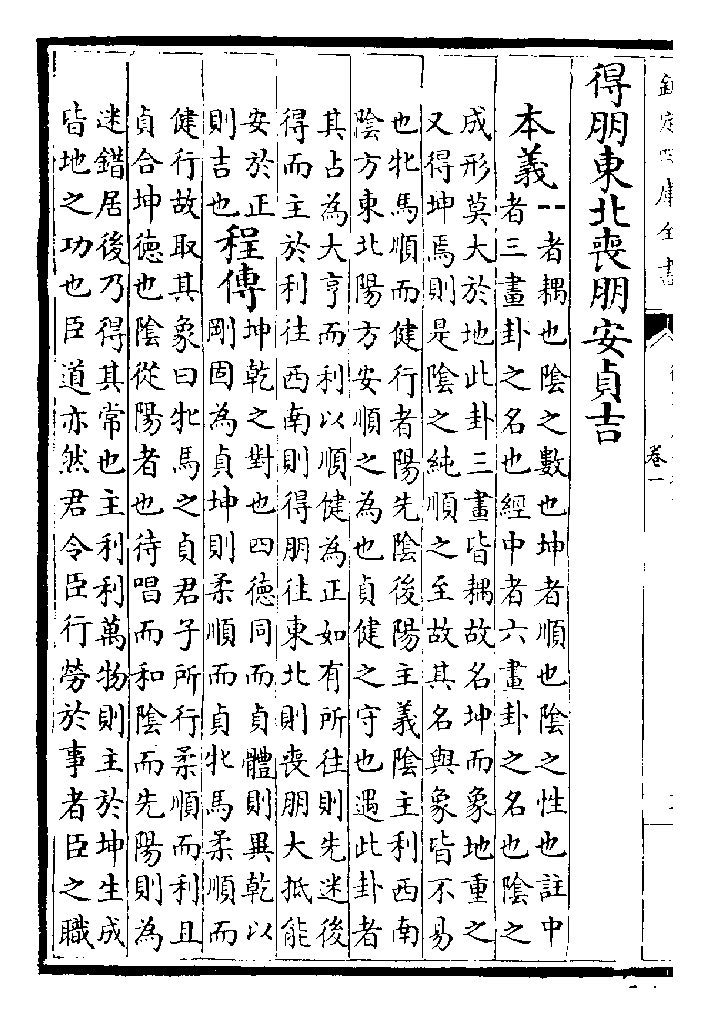 欽定四庫全書
卷一
得朋東北喪朋安貞吉
本義⚋者耦也陰之數也坤者順也陰之性也註中
者三畫卦之名也經中者六畫卦之名也陰之
成形莫大於地此卦三畫皆耦故名坤而象地重之
又得坤焉則是陰之純順之至故其名與象皆不易
也牝馬順而健行者陽先陰後陽主義陰主利西南
陰方東北陽方安順之為也貞健之守也遇此卦者
其占為大亨而利以順健為正如有所往則先迷後
得而主於利往西南則得朋往東北則喪朋大抵能
安於正
則吉也
程傳坤乾之對也四德同而貞體則異乾以
剛固為貞坤則柔順而貞牝馬柔順而
健行故取其象曰牝馬之貞君子所行柔順而利且
貞合坤德也陰從陽者也待唱而和陰而先陽則為
迷錯居後乃得其常也主利利萬物則主於坤生成
皆地之功也臣道亦然君令臣行勞於事者臣之職